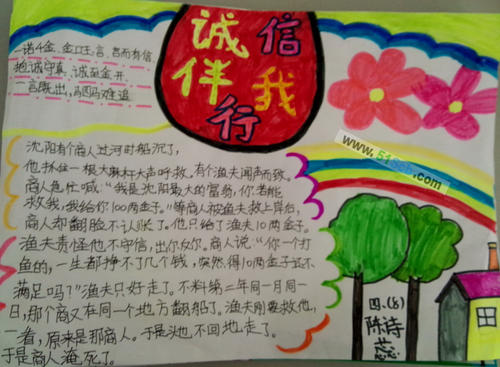 诚信
伴我
行
一诺千金、金口玉言、言而有信、
抱诚守真、诚至金开、
一言既出,驷马难追
www.51
.com
沈阳有个商人过河时船沉了,
他抓住一根大麻杆大声呼救。有个渔夫闻声而致。
商人急忙喊:“我是沈阳最大的富翁,你若能
救我,我给你100两金子。”等商人被渔夫救上岸后,
商人却翻脸不认账了。他只给了渔夫10两金子。
渔夫责怪他不守信,出尔反尔。商人说:“你一个打
鱼的,一生都挣不了几个钱,突然得10两金子还不
满足吗?”渔夫只好走了。不料第二年同一月同一
日,那个商又在同一个地方翻船了。渔夫刚要救他,
一看,原来是那商人。于是头也不回地走了。
于是商人淹死了。
四、(8)
陈诗
蕊